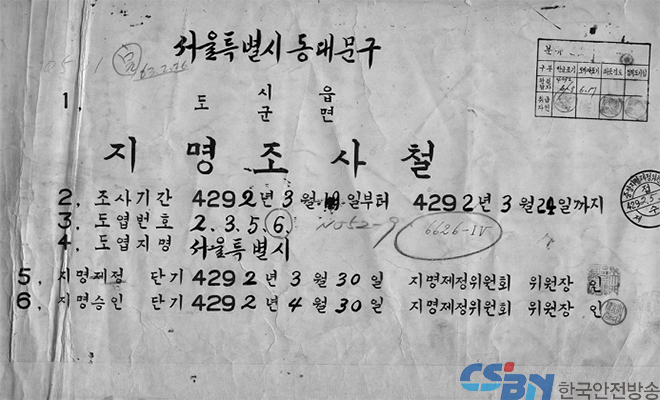 서울특별시 동대문구
62.2.26
1. 도 시 읍
군 면
지명조사철
2. 조사기간 4292년 3월 일부터 4292년 3월 24일까지
3. 도엽번호 2.3.5.6. NO52-9 6626-IV
4. 도엽지명 서울특별시
5. 지명제정 단기 4292년 3월 30일 지명제정위원회 위원장 인
6. 지명승인 단기 4292년 4월 30일 지명제정위원회 위원장 인
CSBN 한국안전방송